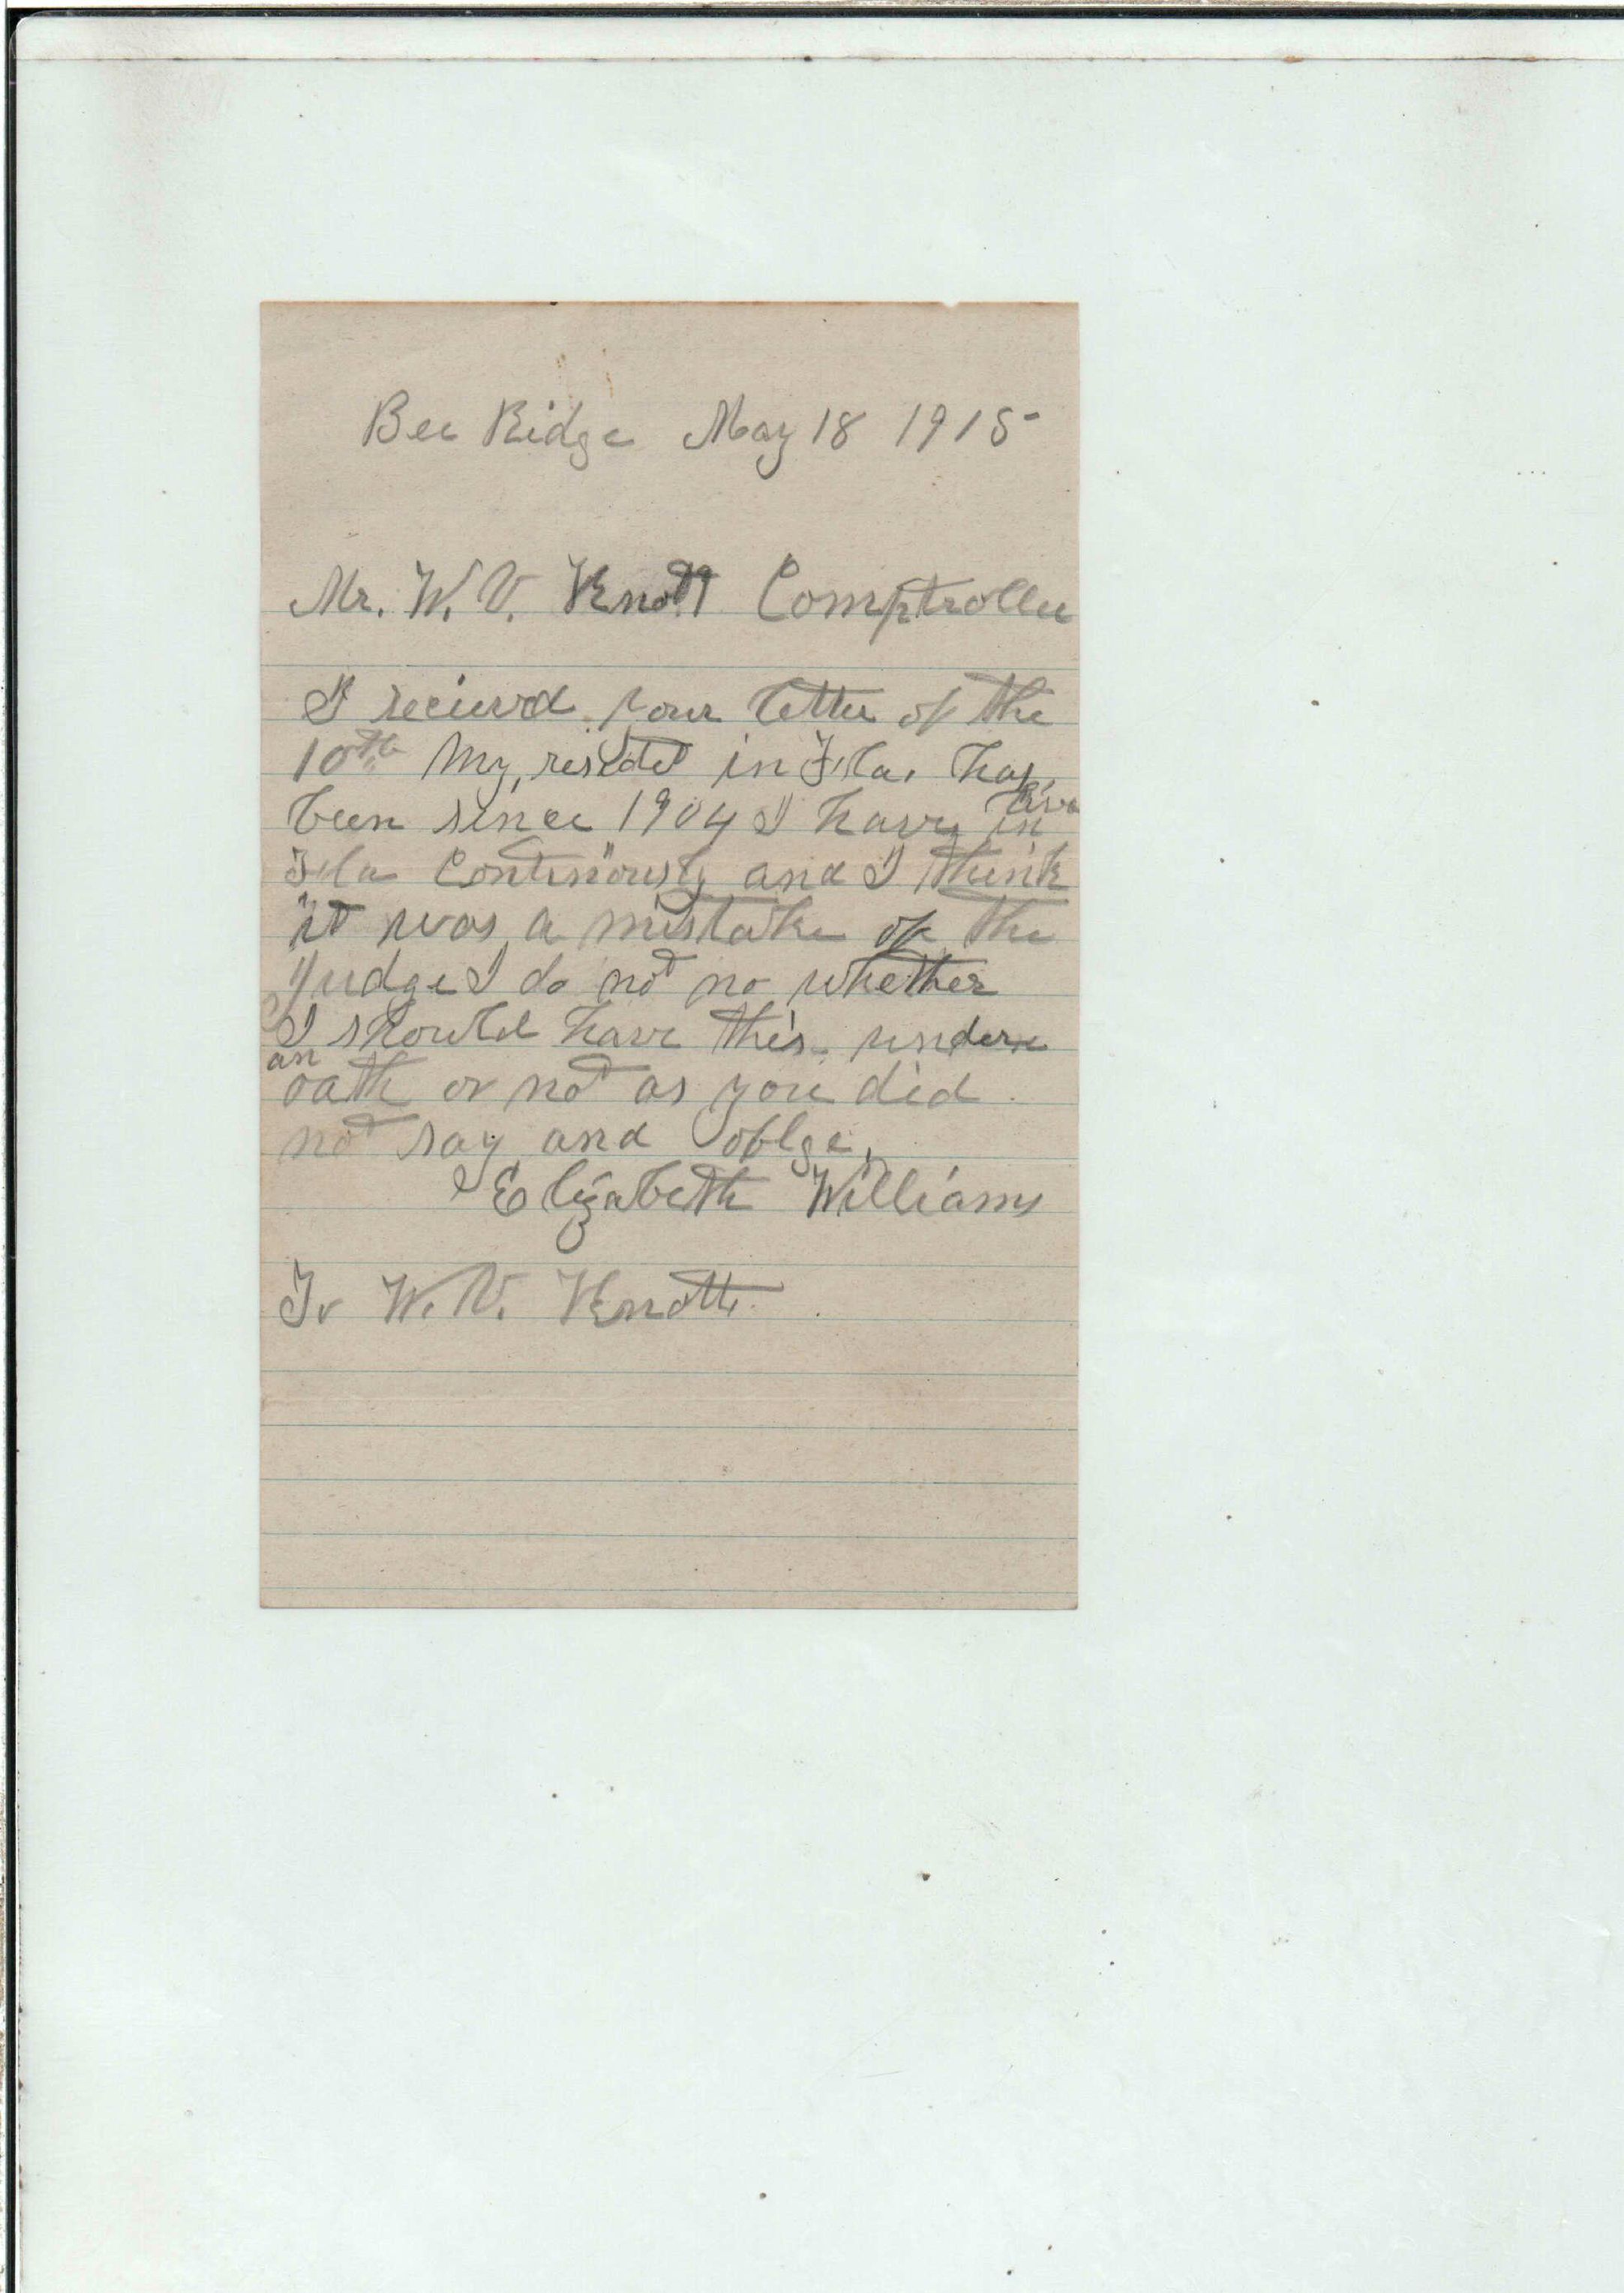 Bee Ridge May 18 1915
Mr. W. V. Knott Comptroller
I recieved your letter of the
10th My resided in Fla. has
been since 1904 I have live in
Fla Continously and I think
it was a mistake of the
Judge I do not no whether
I should have this under
an oath or not as you did
not say and oblge,
Elizabeth Williams
To W. V. Knott.